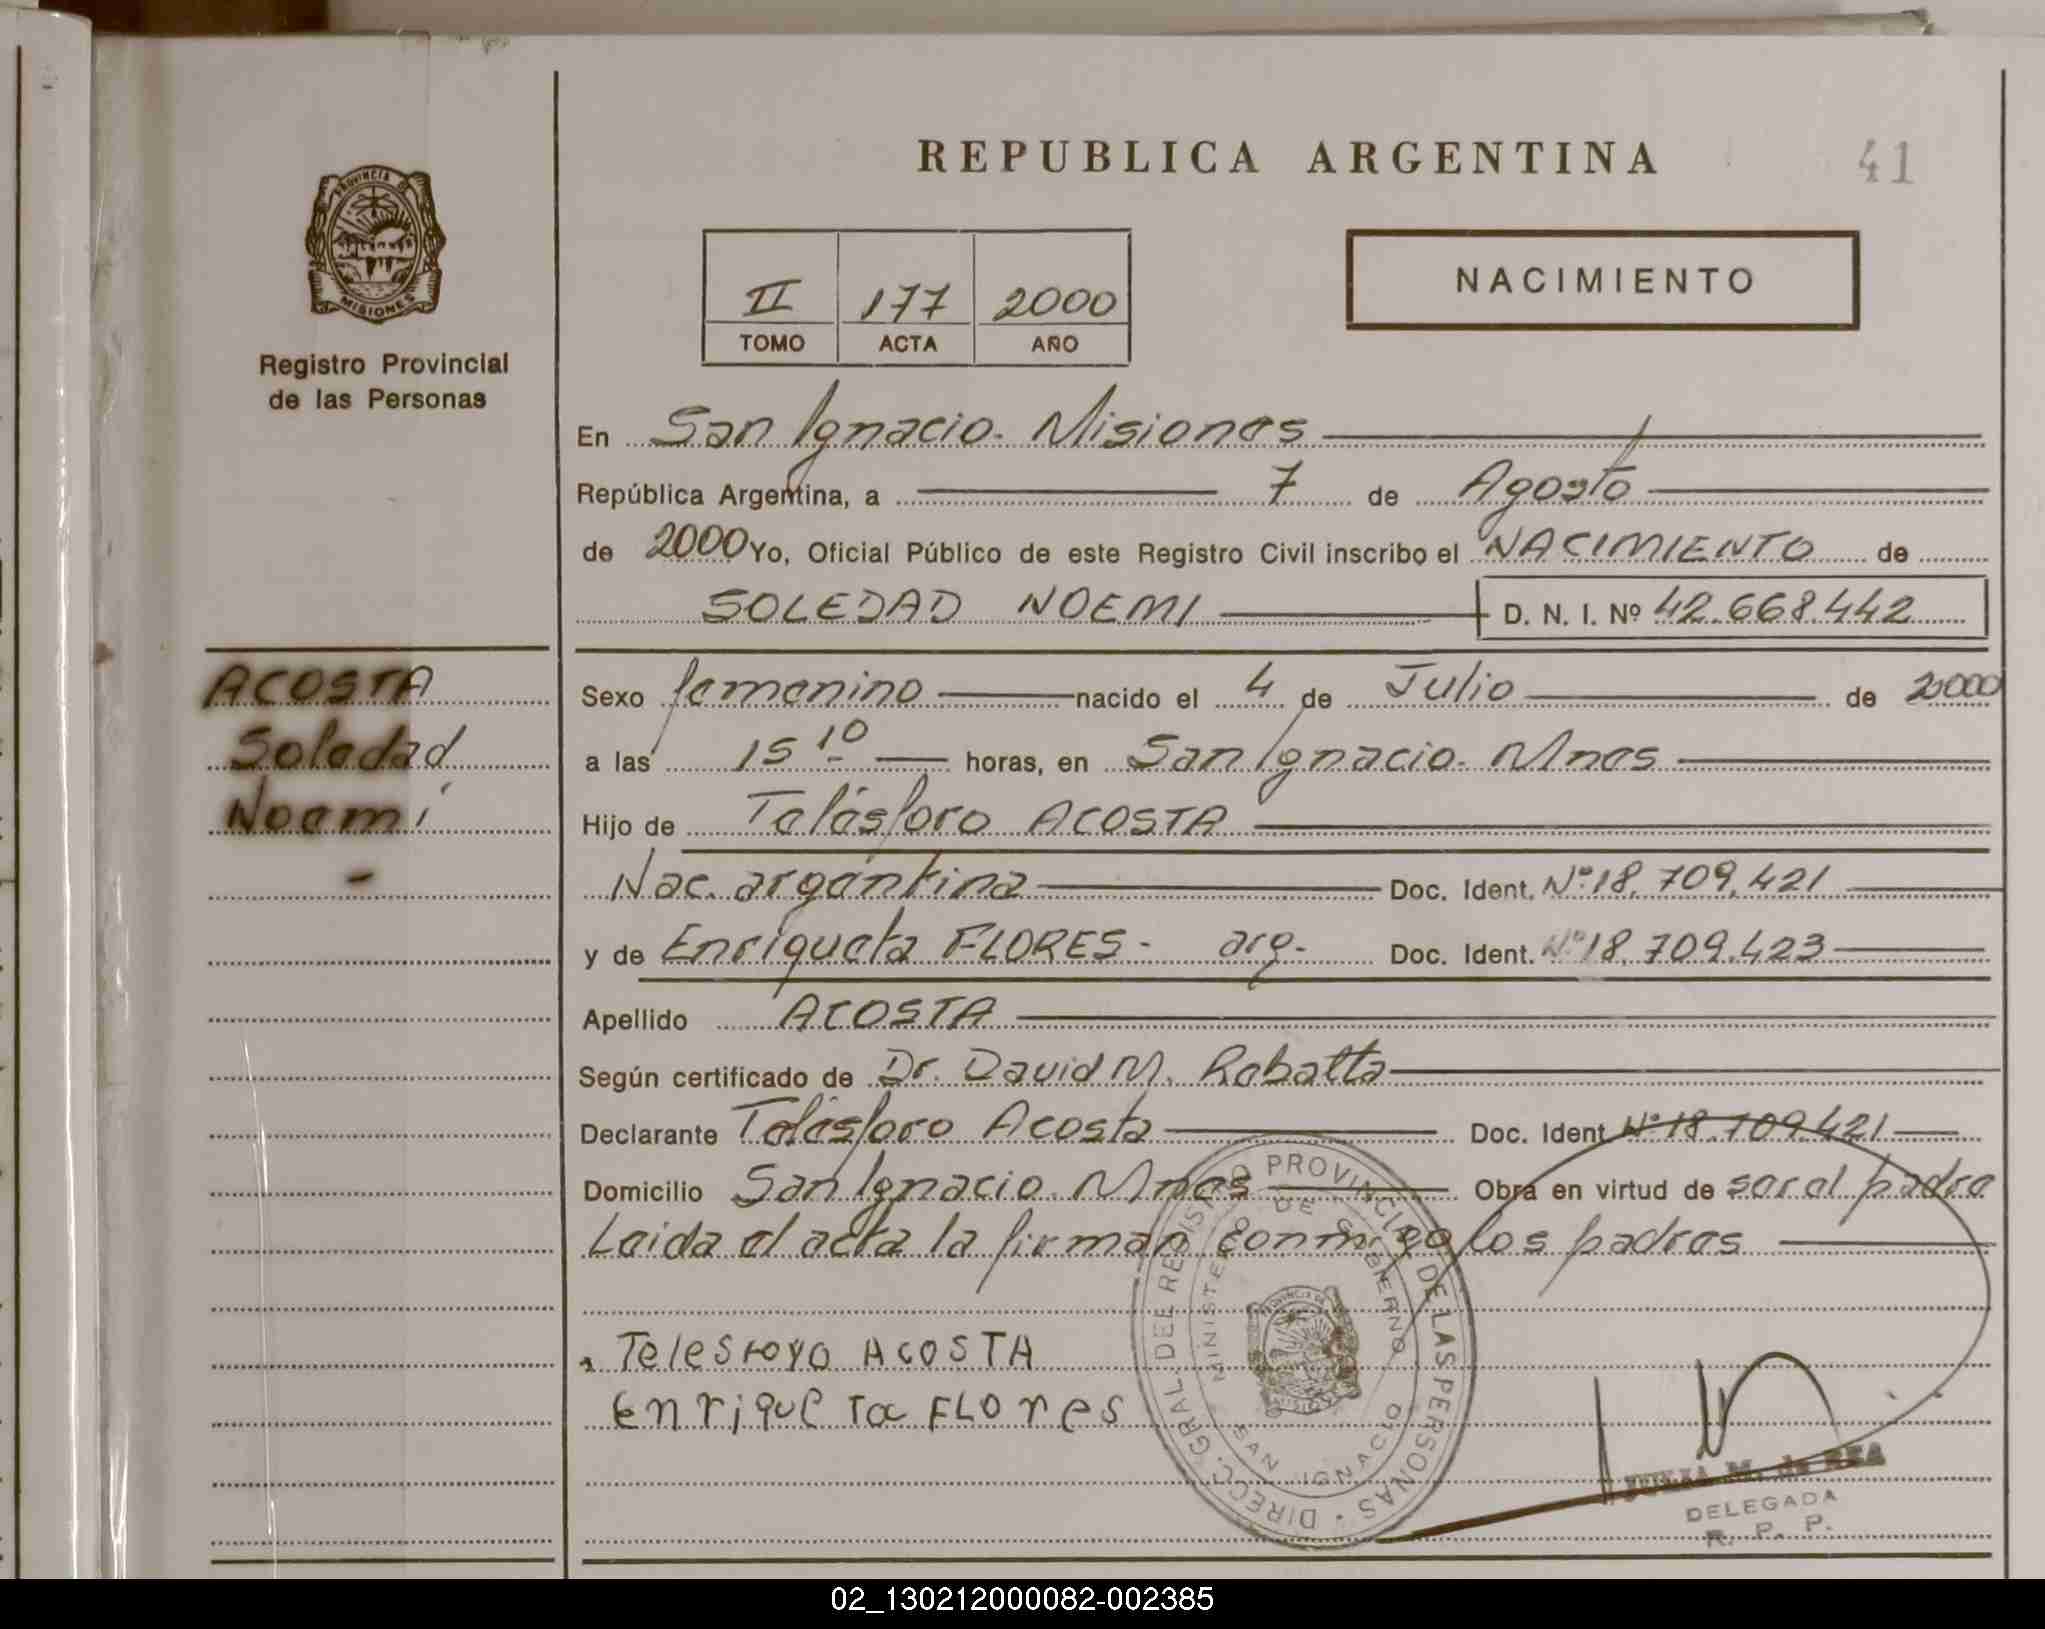 REPUBLICA ARGENTINA
41
PROVINCIA DE
MISIONES
Registro Provincial
de las Personas
II 177 2000
TOMO ACTA AÑO
NACIMIENTO
En San Ignacio. Misiones
República Argentina, a 7 de Agosto
de 2000 Yo, Oficial Público de este Registro Civil inscribo el NACIMIENTO de
SOLEDAD NOEMI D. N. I. Nº 42.668.442
ACOSTA
Soledad
Noemí
-
Sexo femenino nacido el 4 de Julio de 2000
a las 15 10 horas, en San Ignacio. Mnes
Hijo de Telésforo ACOSTA
Nac. argentina Doc. Ident. Nº 18.709.421
y de Enriqueta FLORES - arg. Doc. Ident. Nº 18.709.423
Apellido ACOSTA
Según certificado de Dr. David M. Rebatta
Declarante Telésforo Acosta Doc. Ident. Nº 18.709.421
Domicilio San Ignacio. Mnes Obra en virtud de ser el padre
Leida el acta la firman conmigo los padres
Telesforo ACOSTA
Enriqueta FLOres
DIREC. GRAL. DEL REGISTRO PROVINCIAL DE LAS PERSONAS
MINISTERIO DE GOBIERNO
SAN IGNACIO
JULIA M. de REA
DELEGADA
R. P. P.
02_130212000082-002385